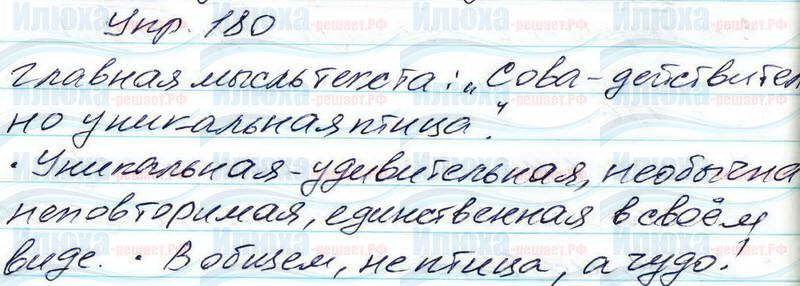 Упр. 180
главная мысль текста: „Сова – действител
но уникальная птица".
· Уникальная – удивительная, необычна
неповторимая, единственная в своём
виде. · В общем, не птица, а чудо!